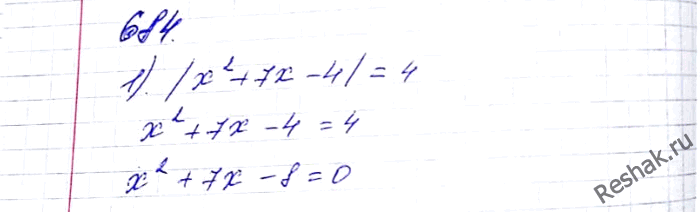 684.
1). |x²+7x-4|=4
x²+7x-4=4
x²+7x-8=0
Reshak.ru